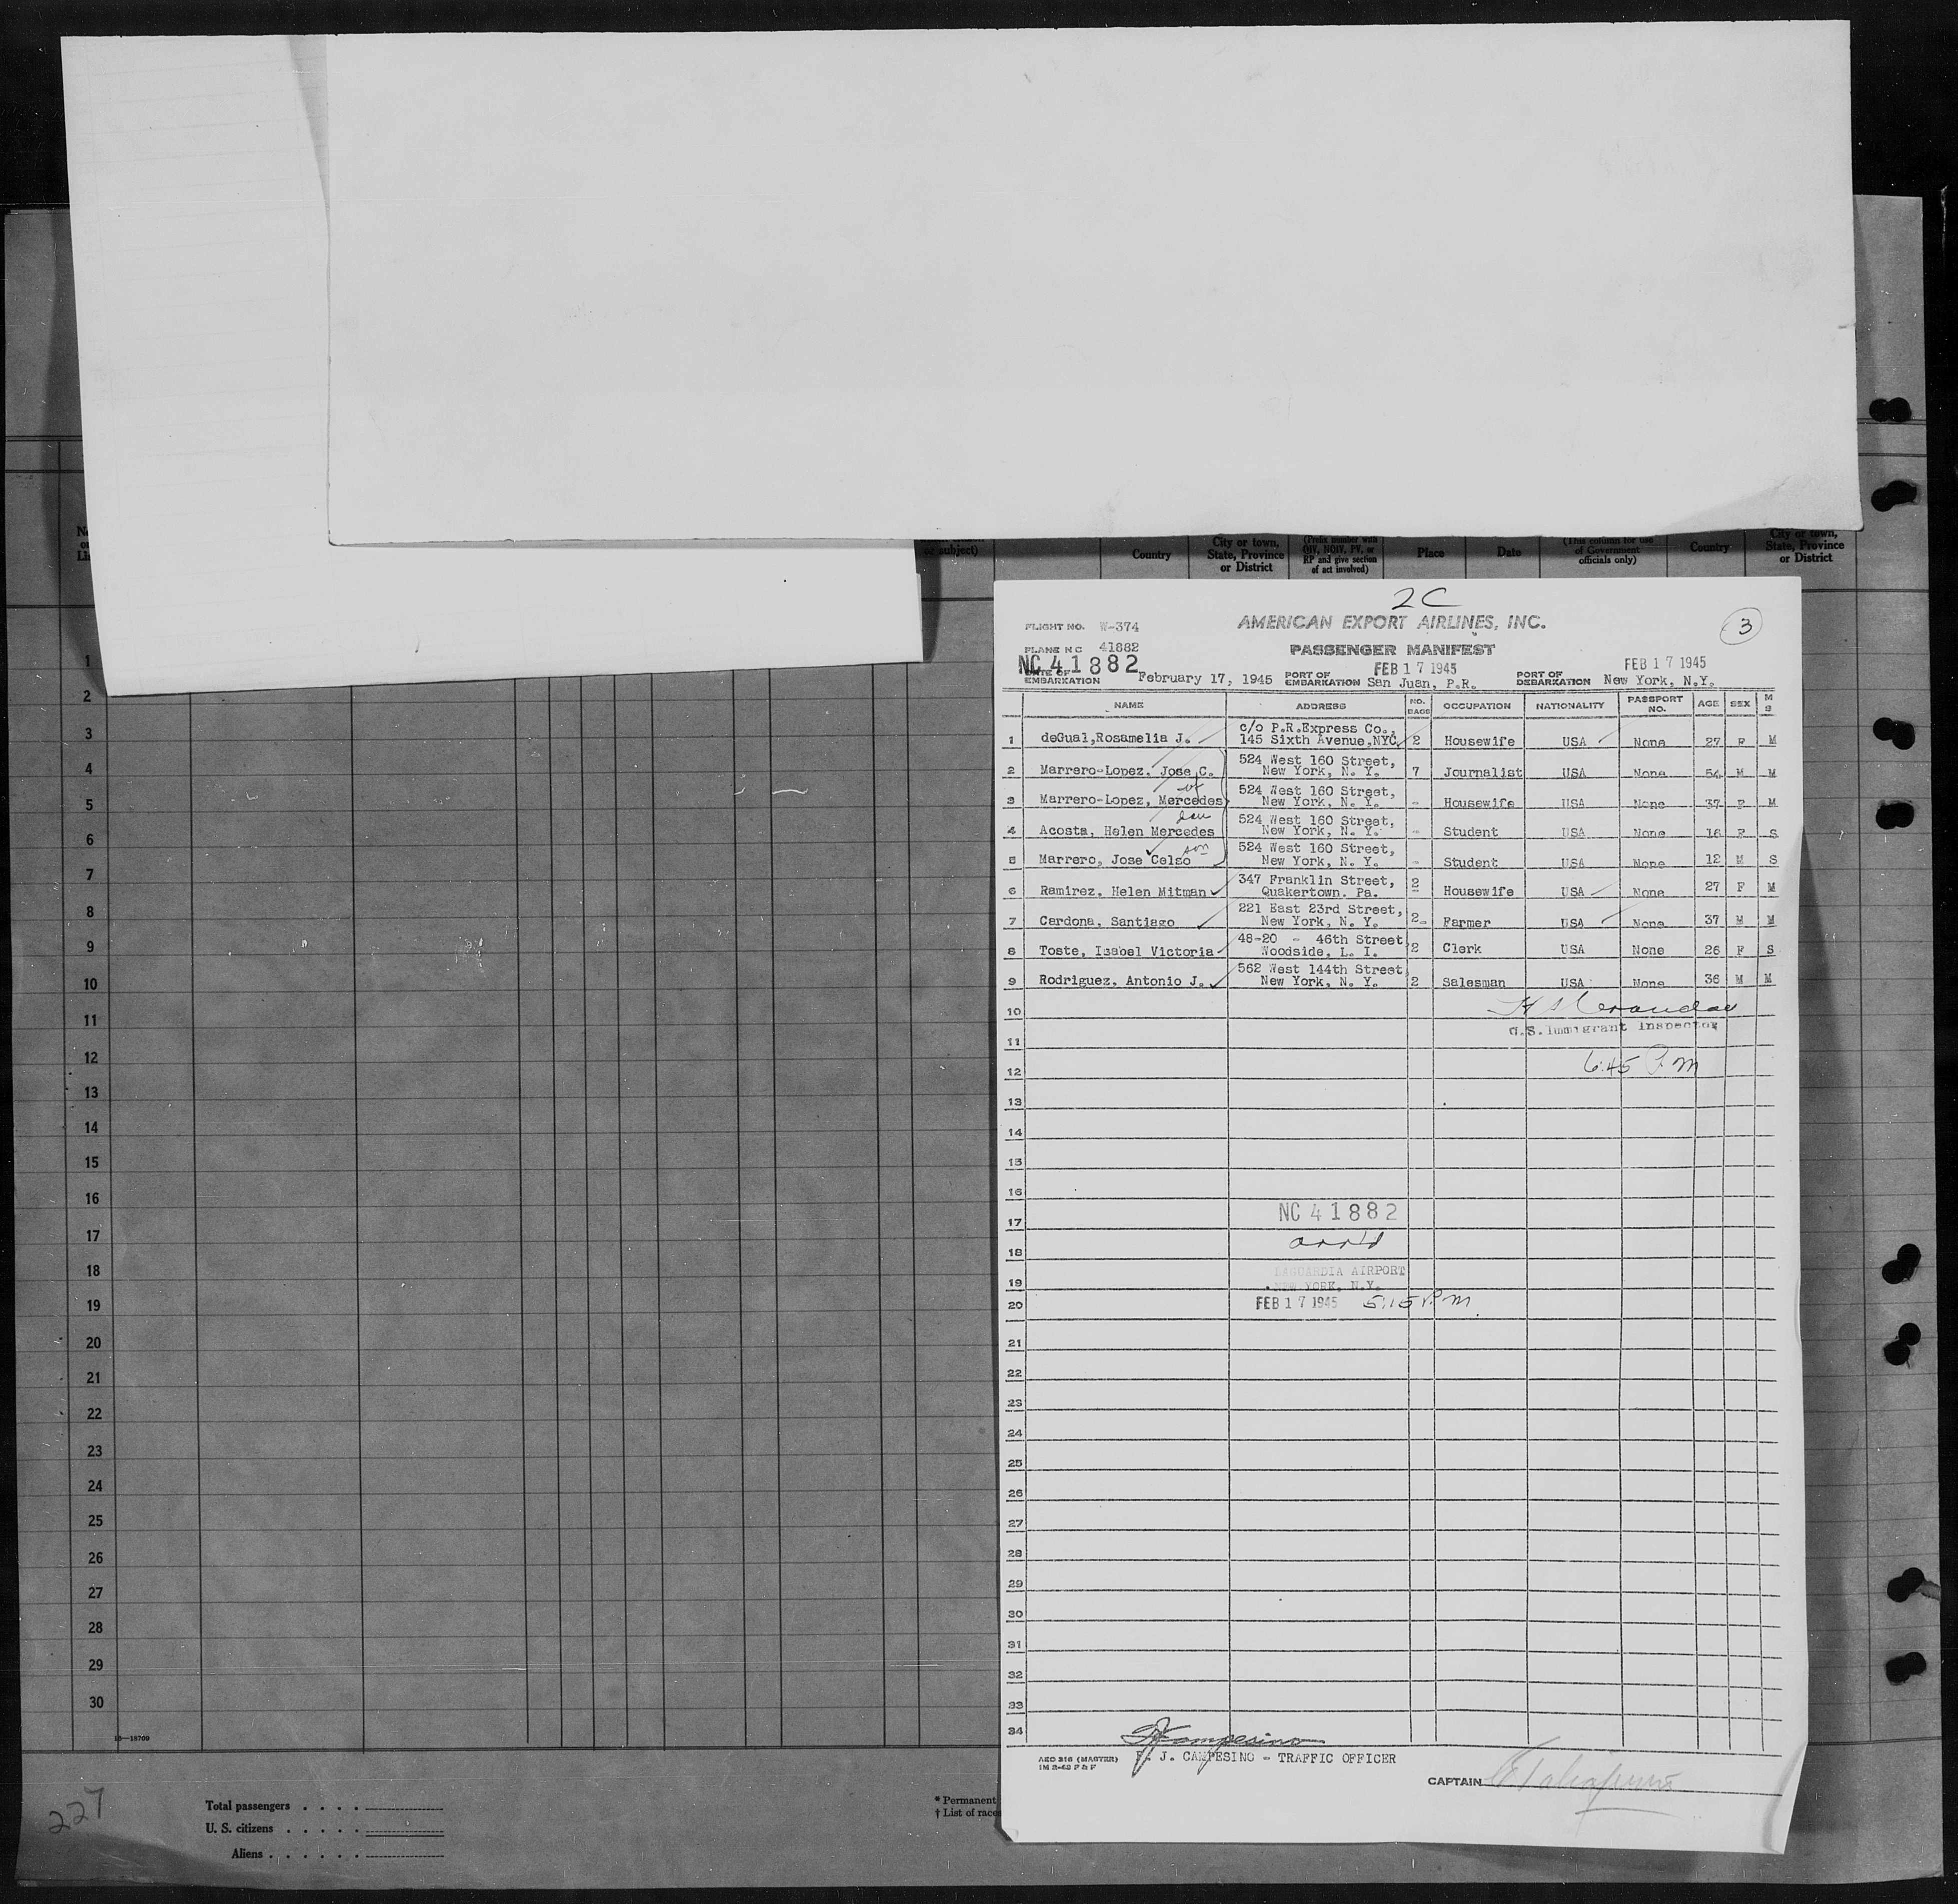 No
or subject)
Country
City or town,
State, Province
or District
(Prefix number with
QIV, NQIV, PV, or
RP and give section
of act involved)
Place
Date
(This column for use
of Government
officials only)
Country
City or town,
State, Province
or District
2C
FLIGHT NO. W-374
AMERICAN EXPORT AIRLINES, INC.
3
PLANE NC 41882
PASSENGER MANIFEST
NC 41882
FEB 17 1945
FEB 17 1945
DATE OF EMBARKATION February 17, 1945 PORT OF EMBARKATION San Juan, P.R. PORT OF DEBARKATION New York, N.Y.
NAME ADDRESS NO. BAGS OCCUPATION NATIONALITY PASSPORT NO. AGE SEX M S
1 deGual,Rosamelia J. c/o P.R.Express Co., 145 Sixth Avenue,NYC 2 Housewife USA None 27 F M
2 Marrero-Lopez, Jose C. 524 West 160 Street, New York, N. Y. 7 Journalist USA None 54 M M
wf
3 Marrero-Lopez, Mercedes 524 West 160 Street, New York, N. Y. - Housewife USA None 37 F M
dau
4 Acosta, Helen Mercedes 524 West 160 Street, New York, N. Y. - Student USA None 16 F S
son
5 Marrero, Jose Celso 524 West 160 Street, New York, N. Y. - Student USA None 12 M S
6 Ramirez, Helen Mitman 347 Franklin Street, Quakertown, Pa. 2 Housewife USA None 27 F M
7 Cardona, Santiago 221 East 23rd Street, New York, N. Y. 2 Farmer USA None 37 M M
8 Toste, Isabel Victoria 48-20 - 46th Street Woodside, L. I. 2 Clerk USA None 26 F S
9 Rodriguez, Antonio J. 562 West 144th Street, New York, N. Y. 2 Salesman USA None 36 M M
10
U.S. Immigrant Inspector
11
6:45 P.M
12
13
14
15
16
NC 41882
17
arr'd
18
LAGUARDIA AIRPORT
19
NEW YORK, N.Y.
20 FEB 17 1945 5:15 P.M.
21
22
23
24
25
26
27
28
29
30
31
32
33
34
Campesino
AEO 316 (MASTER)
F. J. CAMPESINO - TRAFFIC OFFICER
CAPTAIN
1
2
3
4
5
6
7
8
9
10
11
12
13
14
15
16
17
18
19
20
21
22
23
24
25
26
27
28
29
30
16—18709
227
Total passengers . . . .
U. S. citizens . . . . .
Aliens . . . . . .
* Permanent
† List of races